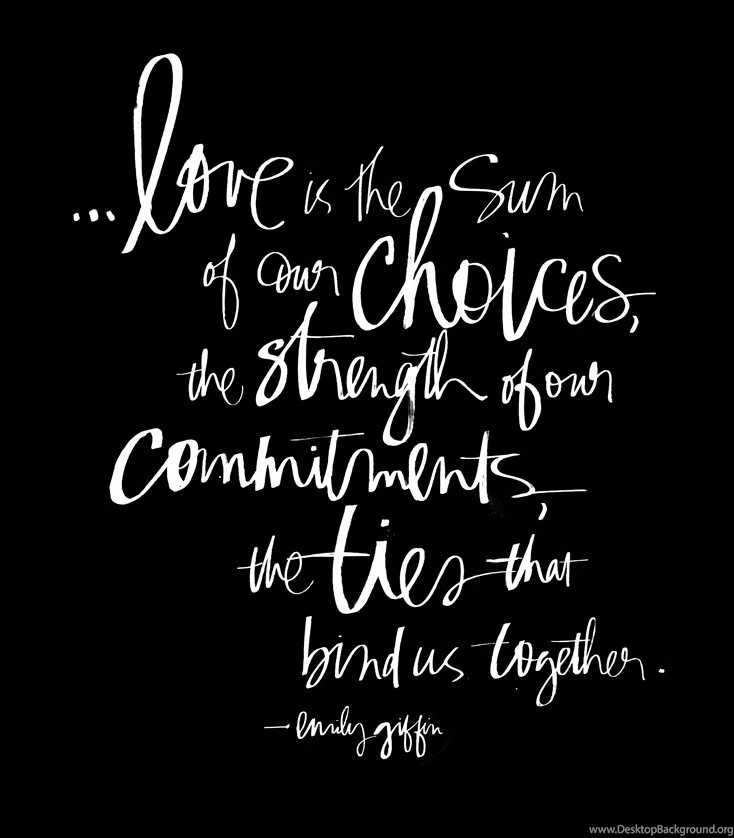 ...love is the sum
of our choices,
the strength of our
commitments,
the ties that
bind us together.
— emily giffin
www.DesktopBackground.org